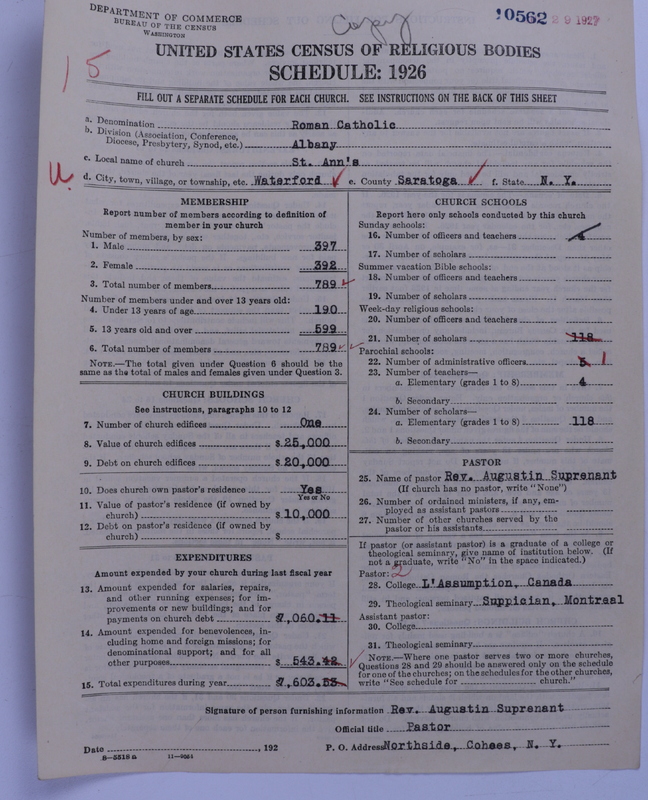 DEPARTMENT OF COMMERCE
BUREAU OF THE CENSUS
WASHINGTON
Copy
10562 29 1927
15
UNITED STATES CENSUS OF RELIGIOUS BODIES
SCHEDULE: 1926
FILL OUT A SEPARATE SCHEDULE FOR EACH CHURCH. SEE INSTRUCTIONS ON THE BACK OF THIS SHEET
a. Denomination Roman Catholic
b. Division (Association, Conference,
Diocese, Presbytery, Synod, etc.) Albany
c. Local name of church St. Ann's
U.
d. City, town, village, or township, etc. Waterford e. County Saratoga f. State N. Y.
MEMBERSHIP
Report number of members according to definition of
member in your church
Number of members, by sex:
1. Male 397
2. Female 392
3. Total number of members 789
Number of members under and over 13 years old:
4. Under 13 years of age 190
5. 13 years old and over 599
6. Total number of members 789
NOTE.—The total given under Question 6 should be
same as the total of males and females given under Question 3.
CHURCH BUILDINGS
See instructions, paragraphs 10 to 12
7. Number of church edifices One
8. Value of church edifices $ 25,000
9. Debt on church edifices $ 20,000
10. Does church own pastor's residence Yes
Yes or No
11. Value of pastor's residence (if owned by
church) $ 10,000
12. Debt on pastor's residence (if owned by
church) $
EXPENDITURES
Amount expended by your church during last fiscal year
13. Amount expended for salaries, repairs,
and other running expenses; for im-
provements or new buildings; and for
payments on church debt $ 7,060.11
14. Amount expended for benevolences, in-
cluding home and foreign missions; for
denominational support; and for all
other purposes $ 543.42
15. Total expenditures during year $ 7,603.53
CHURCH SCHOOLS
Report here only schools conducted by this church
Sunday schools:
16. Number of officers and teachers 4
17. Number of scholars
Summer vacation Bible schools:
18. Number of officers and teachers
19. Number of scholars
Week-day religious schools:
20. Number of officers and teachers
21. Number of scholars 118
Parochial schools:
22. Number of administrative officers 5 1
23. Number of teachers—
a. Elementary (grades 1 to 8) 4
b. Secondary
24. Number of scholars—
a. Elementary (grades 1 to 8) 118
b. Secondary
PASTOR
25. Name of pastor Rev. Augustin Suprenant
(If church has no pastor, write "None")
26. Number of ordained ministers, if any, em-
ployed as assistant pastors
27. Number of other churches served by the
pastor or his assistants
If pastor (or assistant pastor) is a graduate of a college or
theological seminary, give name of institution below. (If
not a graduate, write "No" in the space indicated.)
Pastor: 2
28. College L'Assumption, Canada
29. Theological seminary Suppician, Montreal
Assistant pastor:
30. College
31. Theological seminary
NOTE.—Where one pastor serves two or more churches,
Questions 28 and 29 should be answered only on the schedule
for one of the churches; on the schedules for the other churches,
write "See schedule for ______ church."
Signature of person furnishing information Rev. Augustin Suprenant
Official title Pastor
Date ______, 192 P. O. Address Northside, Cohoes, N. Y.
8—5518a 11—9051